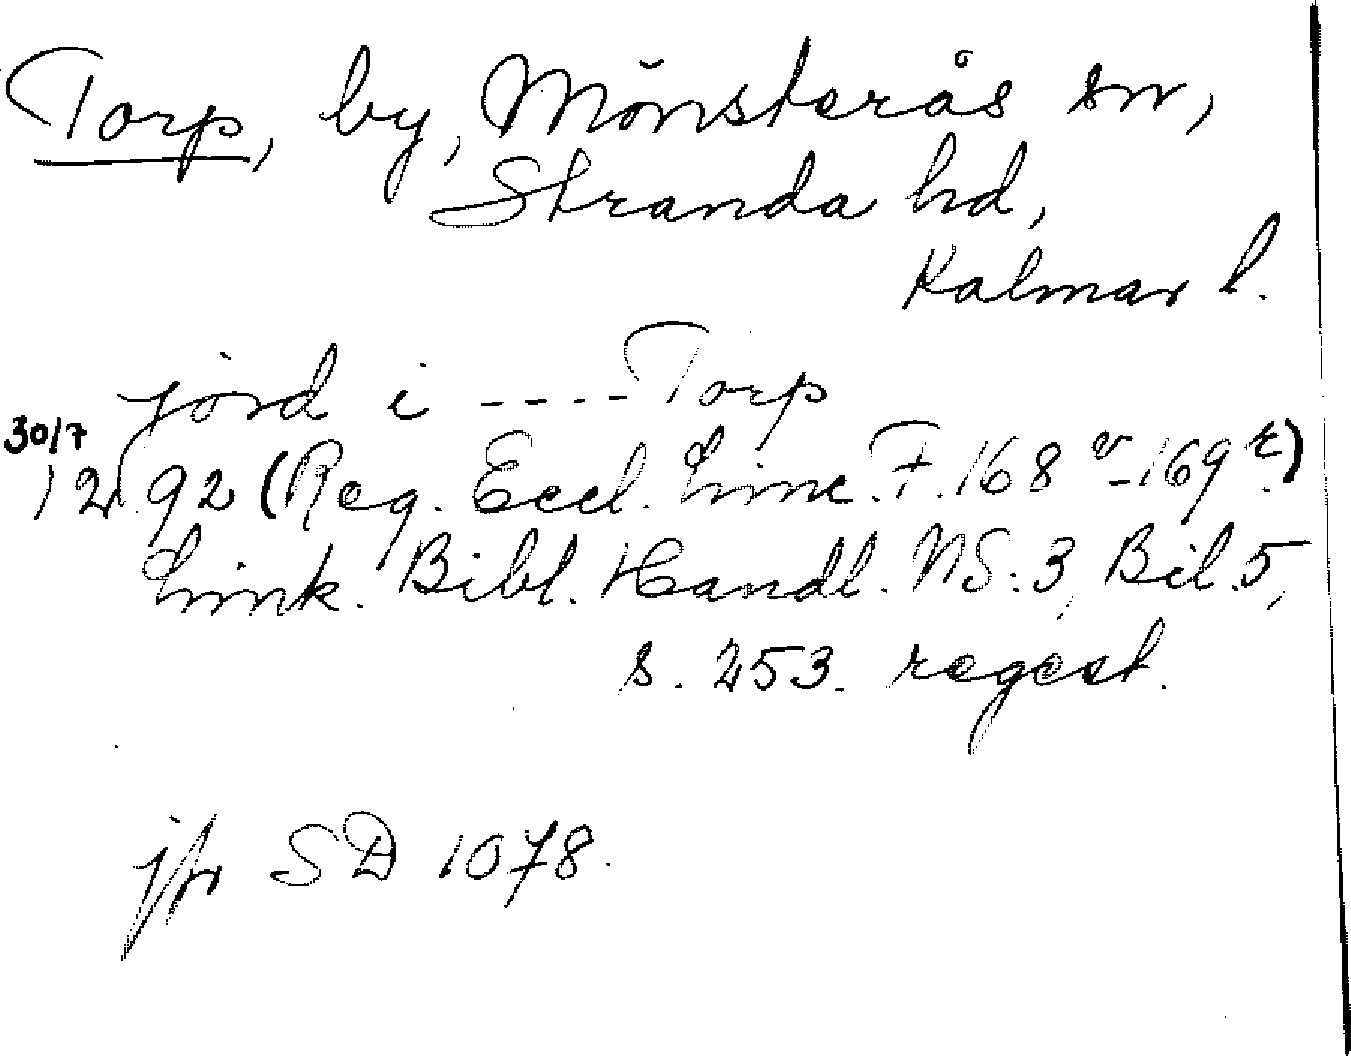 Torp, by, Mönsterås sn,
Stranda hd,
Kalmar l.
jord i ---- Torp
30/7
1292 (Reg. Eccl. Linc. F. 168 v - 169 r)
Link. Bibl. Handl. NS. 3, Bil. 5,
s. 253. regest.
jfr SD 1078.